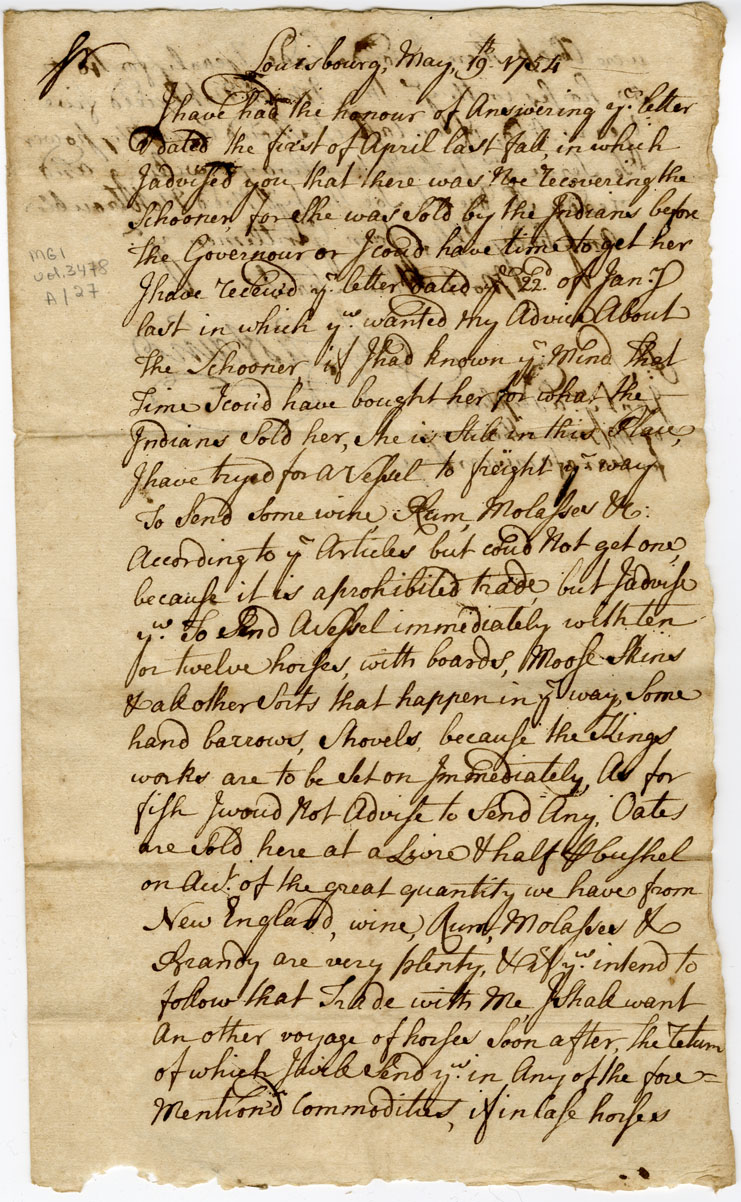 Sr
Louisbourg, May, 19th. 1754
I have had the honour of Answering yr. letter
dated the first of April last fall, in which
I advised you that there was No recovering the
Schooner, for she was Sold by the Indians before
The Governour or I coud have time to get her
I have receiv'd yr. letter dated ye 22d of Jany
last in which yu. wanted My Advice About
The Schooner if I had known yr. Mind That
Time I coud have bought her for what the
Indians Sold her, she is Still in this Place,
I have tryed for a Vessel to freight yr. way
To Send Some wine, Rum, Molasses &c:
According to yr Articles but coud Not get one,
because it is a prohibited trade but I advise
yu. To Send A Vessel immediately with ten
or twelve horses, with boards, Moose Skins
& all other Sorts that happen in yr way, Some
hand barrows, Shovels, because the Kings
works are to be Set on Immediately, As for
fish I woud Not Advise to Send Any, Oates
are Sold here at a Livre & half pr bushel
on Acct. of the great quantity we have from
New England, wine, Rum, Molasses &
Brandy are very plenty, & if yu. intend to
follow that Trade with Me, I Shall want
An other voyage of horses Soon after, the return
of which I will Send yu. in Any of the fore=
Mention'd Commodities, if in Case horses
MG1
vol.3478
A/27